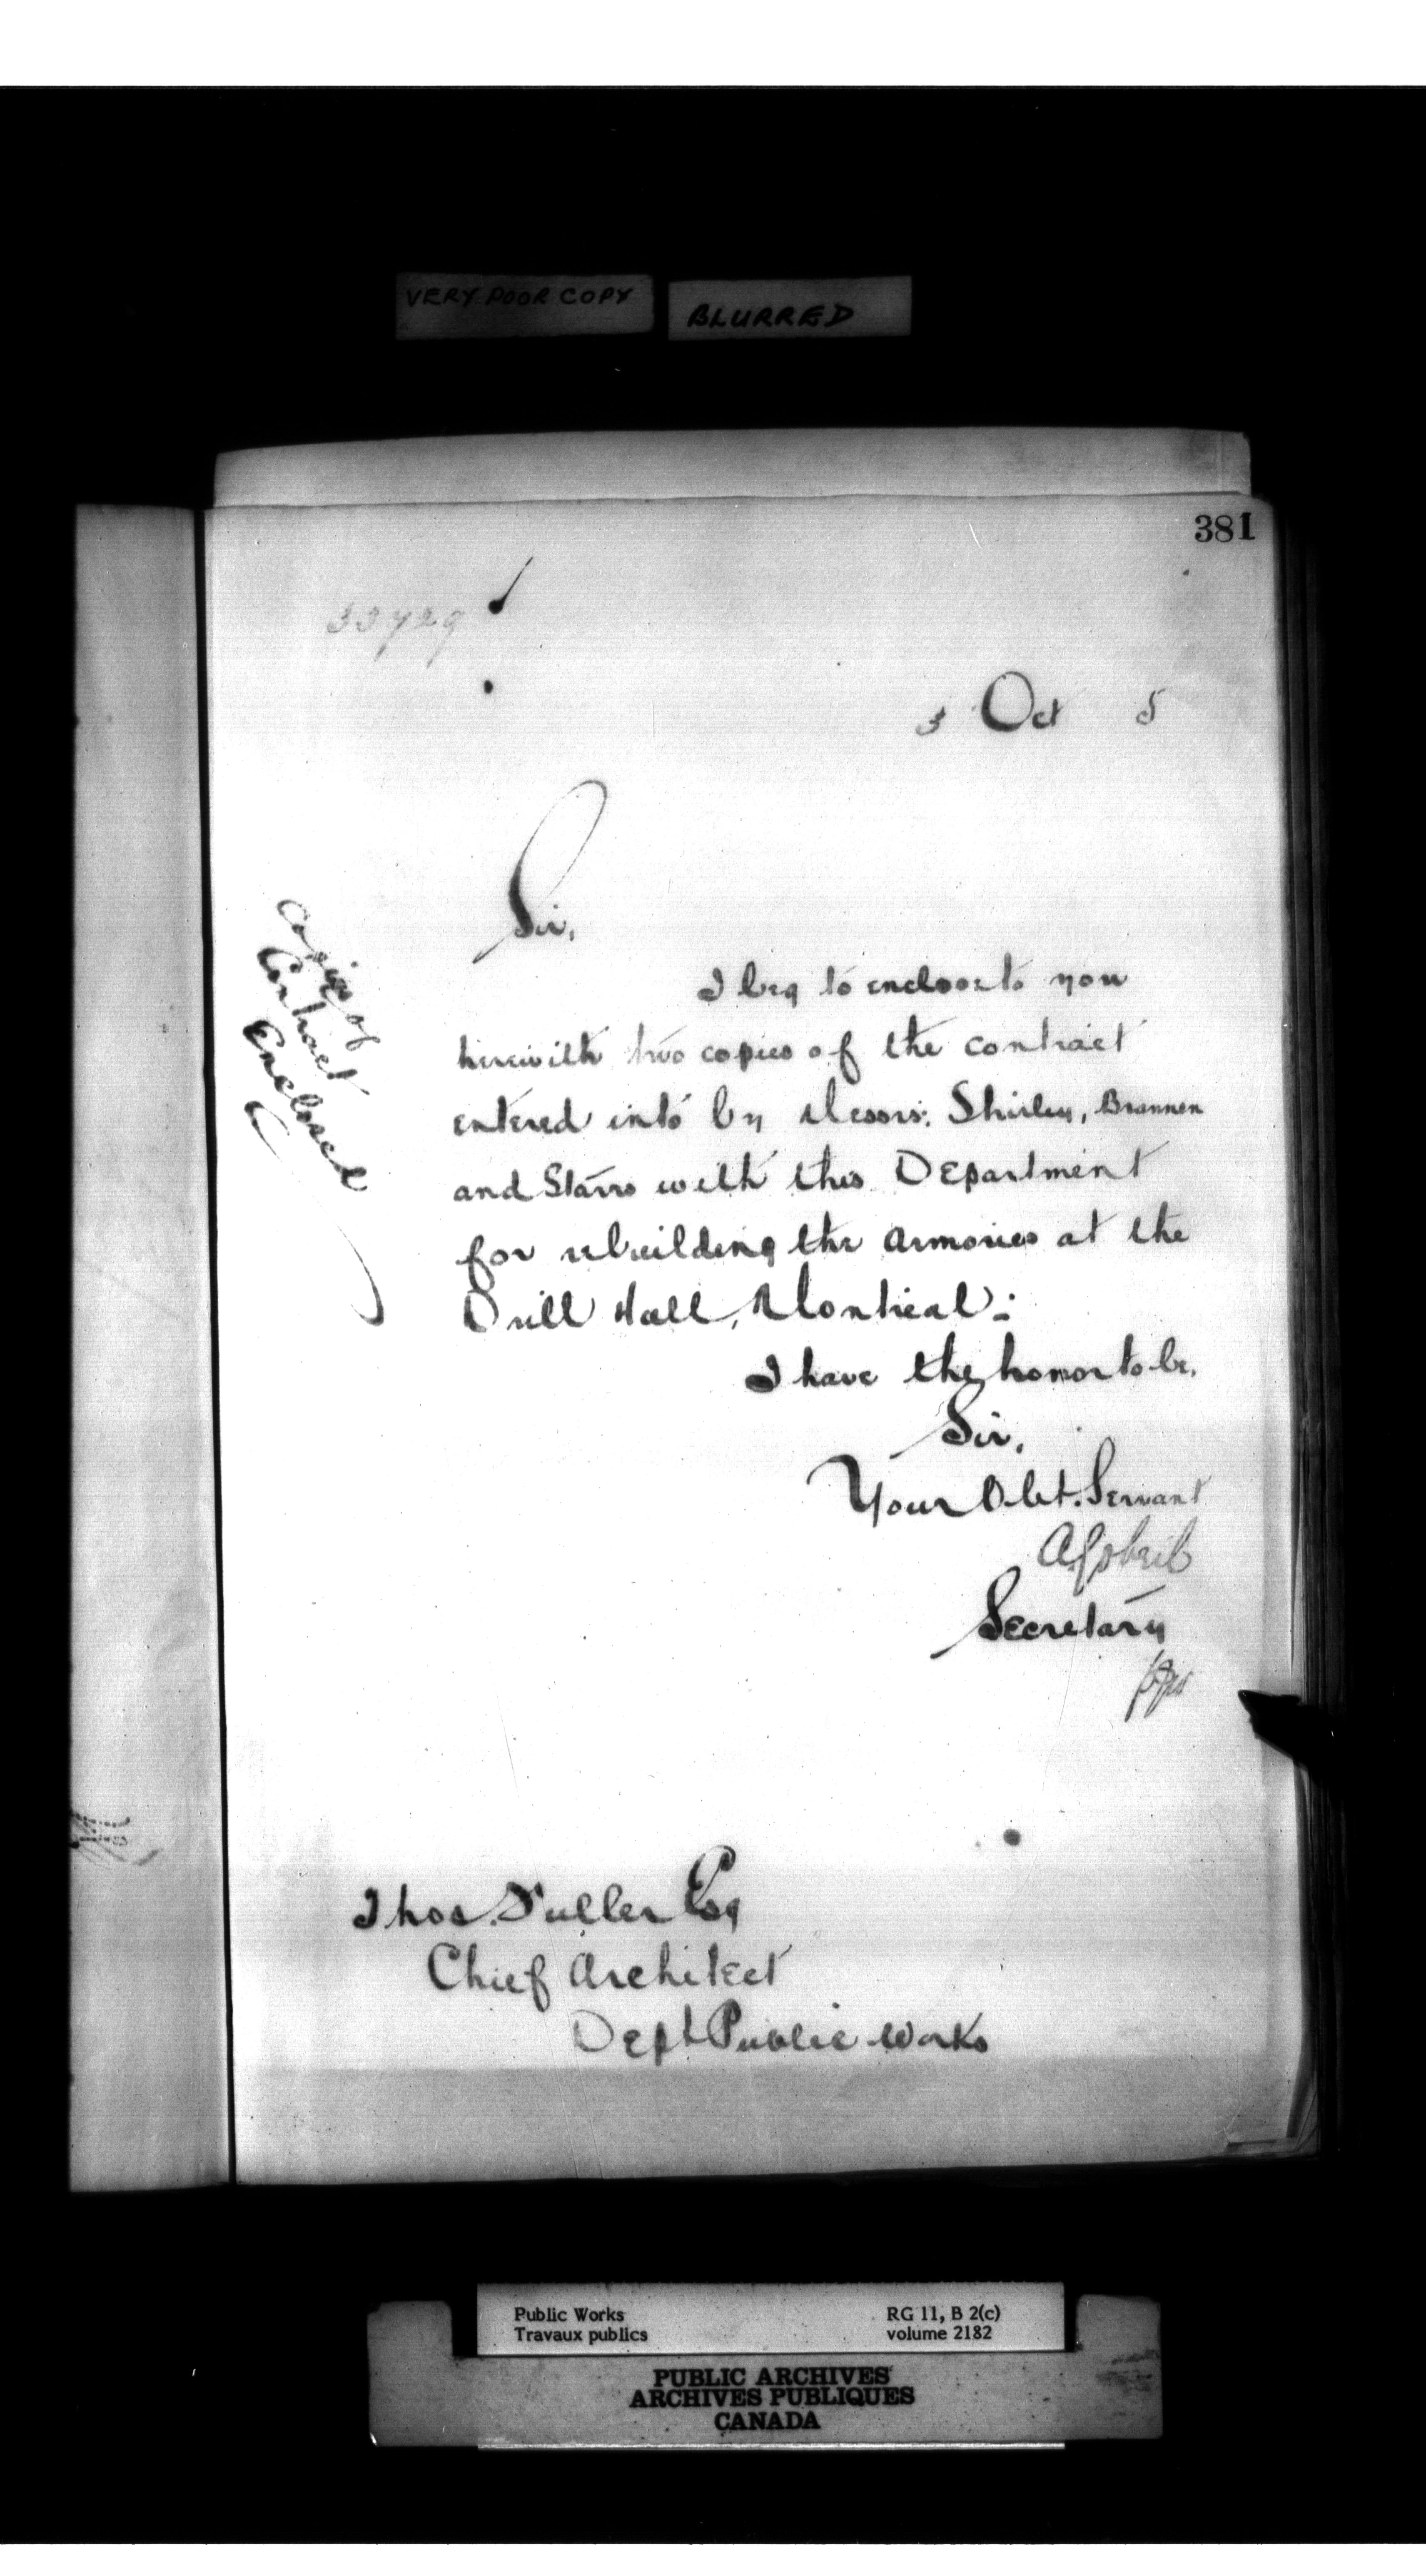 VERY POOR COPY
BLURRED
381
33729
3 Oct 5
Sir,
I beg to enclose to you
herewith two copies of the contract
entered into by Messrs: Shirley, Brannen
and Starrs with this Department
for rebuilding the armories at the
Drill Hall, Montreal:-
I have the honor to be,
Sir,
Your Obt. Servant
Secretary
copies of
Contract
Enclosed
Thos. Fuller Esq
Chief Architect
Dept Public Works
Public Works
Travaux publics
RG 11, B 2(c)
volume 2182
PUBLIC ARCHIVES
ARCHIVES PUBLIQUES
CANADA